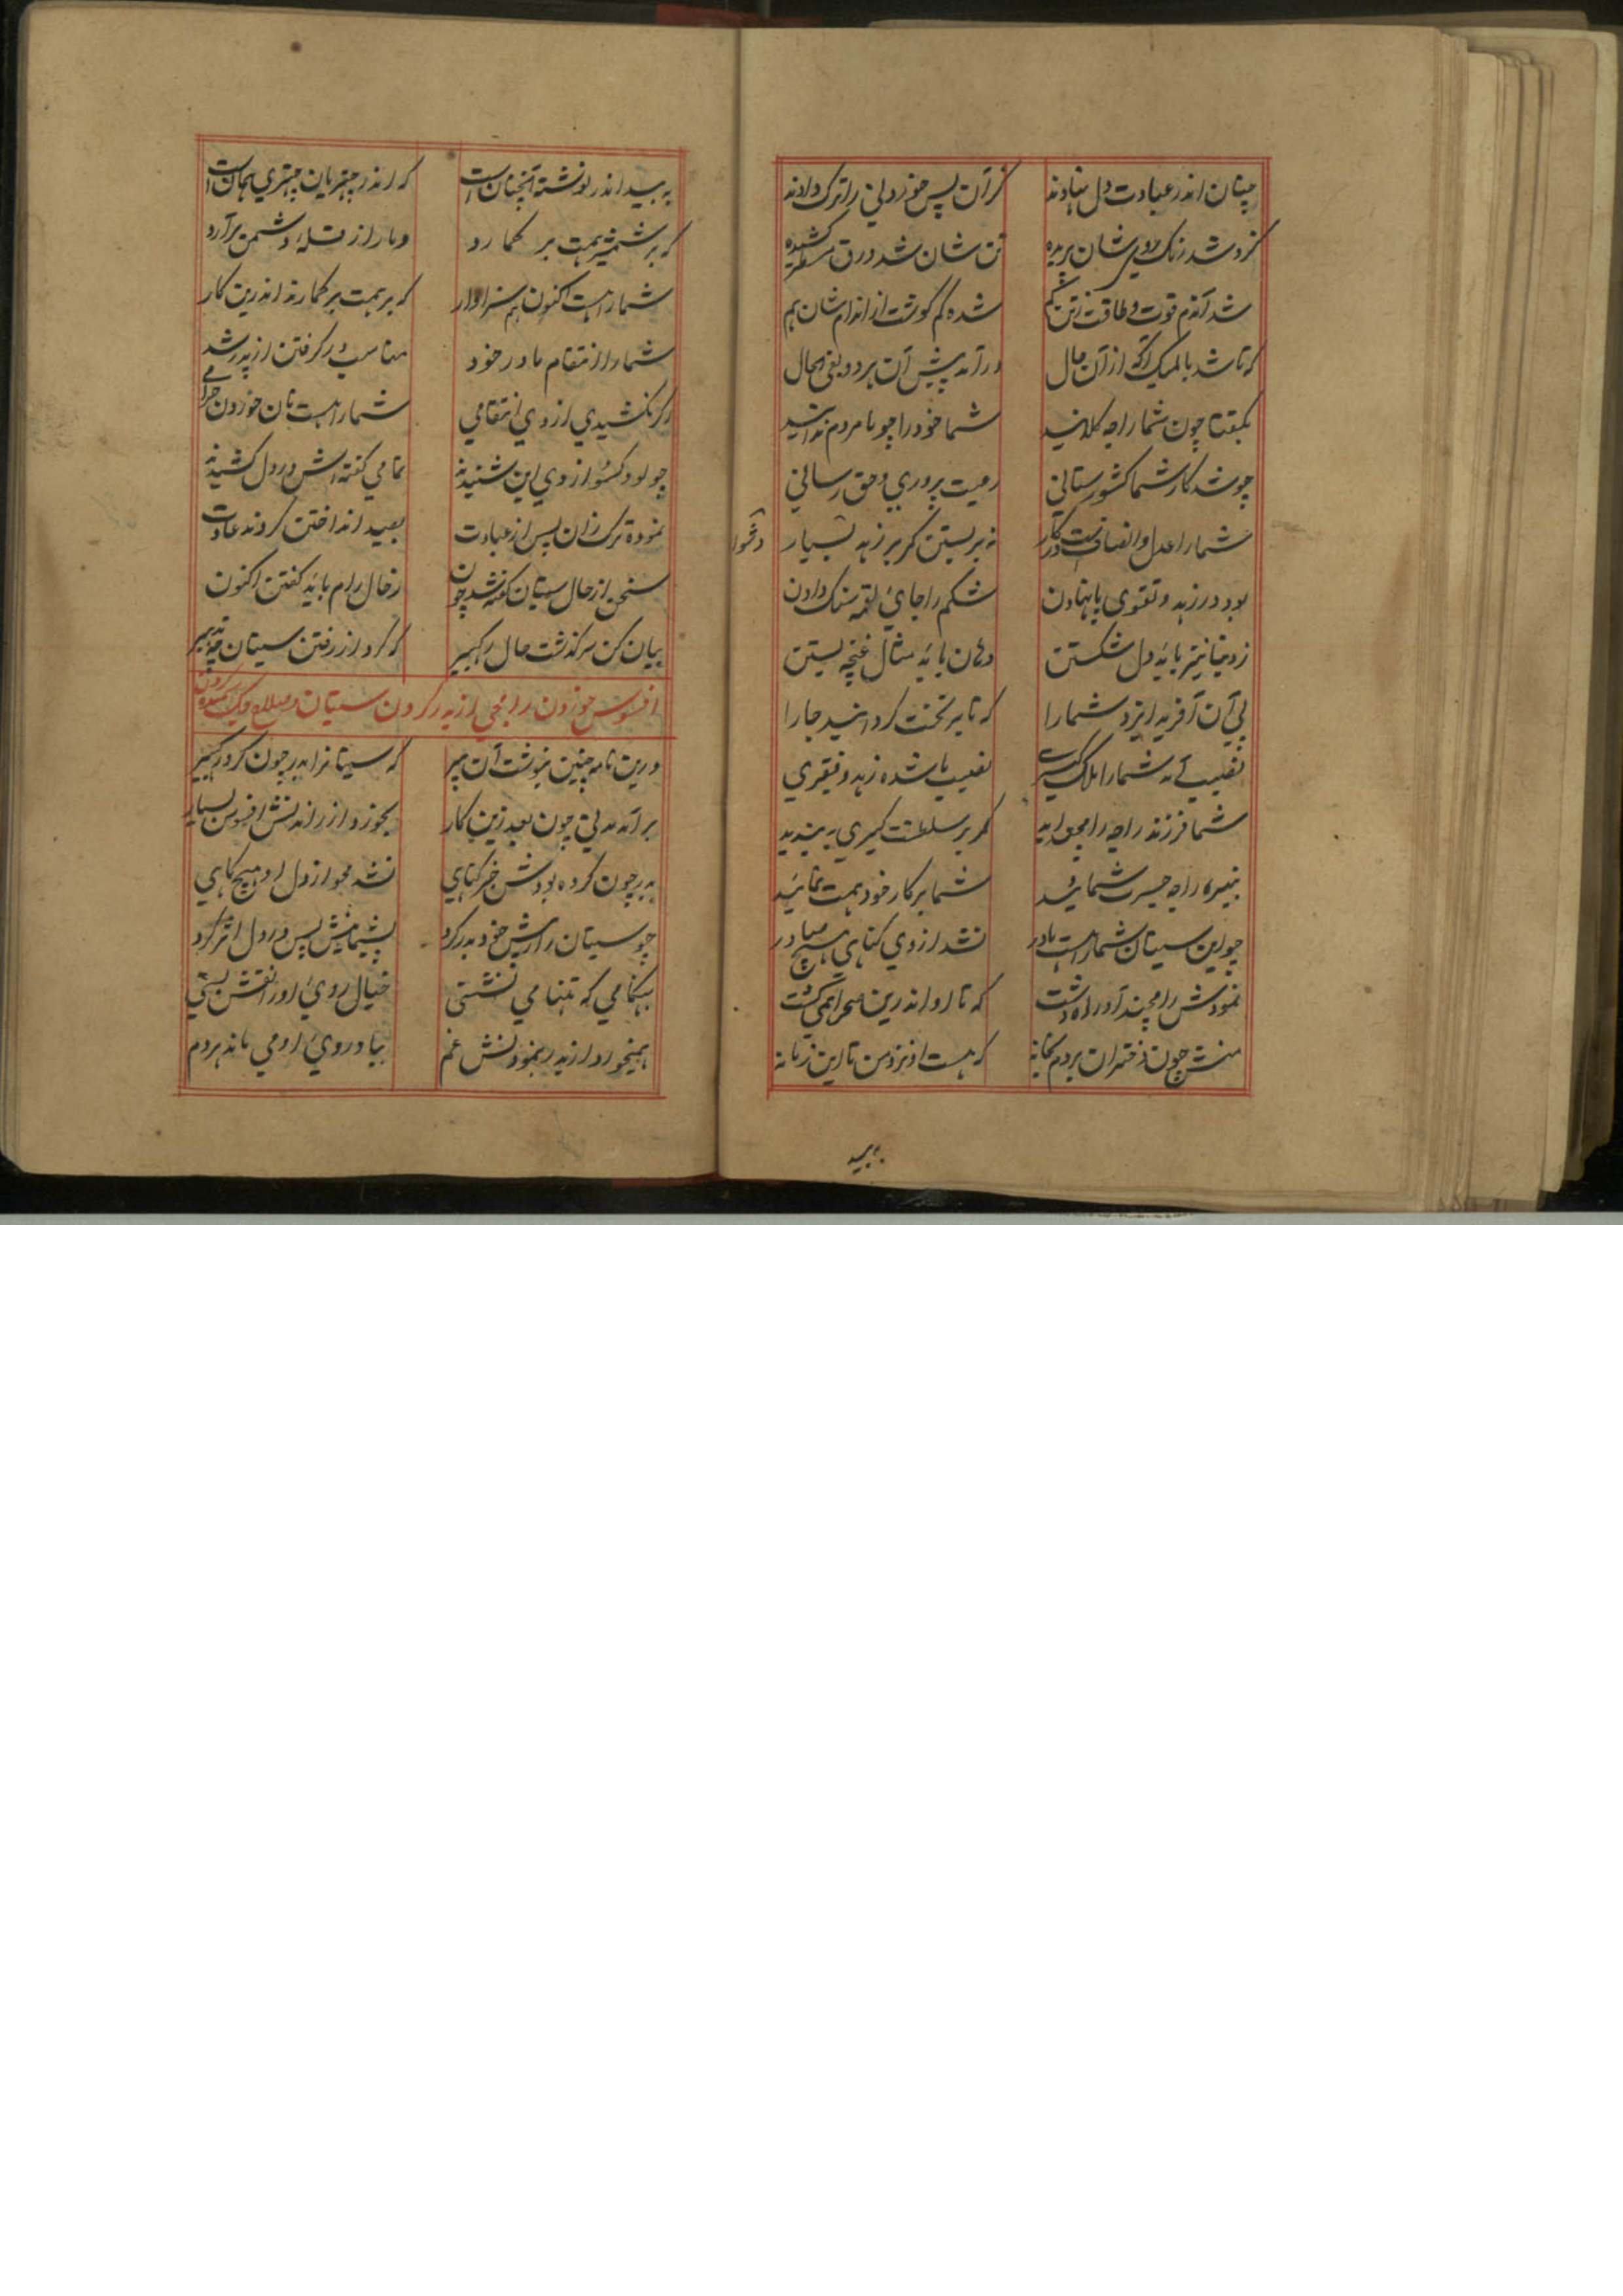 چنان اندر عبادت دل نهادند کز آن پس خوردنی را ترک دادند
کزو شد رنگ روی شان پریده تن شان شد ورق مسطر کشیده
شد آندم قوت و طاقت ز تن کم شده کم گوشت از اندام شان هم
که تا شد بالمیک آگه از آن حال در آمد پیش آن هر دو بفی الحال
بگفتا چون شما راجه کلانید شما خود را چو با مردم
چو شد کار شما کشور ستانی رعیت پروری و حق رسانی
شما را عدل و انصافست در کار نه بر بستن کمر بر زهد بسیار
دشوار
بود در زهد و تقوی پا نهادن شکم را جای لقمه سنگ دادن
ز دنیا نیز باید دل شکستن دهان باید مثال غنچه بستن
پی آن آفرید ایزد شما را که تا بر تخت گردانید جا را
نصیب آمد شما را ملک گیری نصیب ما شده زهد و فقیری
شما فرزند راجه رامچندید کمر بر سلطنت گیری به بندید
نبیره راجه جسرت شمائید شما بر کار خود همت نمائید
چو این سیتا شما را هست مادر نشد از وی گناهی هیچ صادر
نمودش رامچند آواره دشت که تا او اندرین صحرا همی گشت
منش چون دختران بردم بخانه که هست او نزد من تا این زمانه
به بید
به بید اندر نوشته آنچنان است که اندر چهتریان چهتری همان است
که بر شمشیر همت بر گمارد دمار از قبله دشمن برآرد
شما را هست اکنون هم سزاوار که بر همت بر گمارند اندرین کار
شما را انتقام مادر خود مناسب در گرفتن از پدر شد
گر نکشیدی از وی انتقامی شما را هست نان خوردن حرامی
چو لو و کسو از وی این شنیدند تمامی گفته اش در دل کشیدند
نموده ترک زان پس از عبادت بصید انداختن کردند عادت
سخن از حال سیتا گفته شد چون ز حال رام باید گفتن اکنون
بیان کن سرگذشت حال رگبیر که کرد از رفتن سیتا چه تدبیر
افسوس خوردن رامجی از بدر کردن سیتا و صلاح جگ کردن
درین نامه چنین بنوشت آن میر که سیتا را بدر چون کرد رگبیر
بر آمد مدتی چون بعد زین کار بخورد از راندنش افسوس بسیار
بدر چون کرده بودش بر گناهی نشد محو از دل او هیچ گاهی
چو سیتا را از پیش خود بدر کرد پشیمانیش پس در دل اثر کرد
بهنگامی که تنها می نشستی خیال روی او را نقش بستی
همیخورد از بدر بنمودنش غم بیاد روی او می ماند هر دم